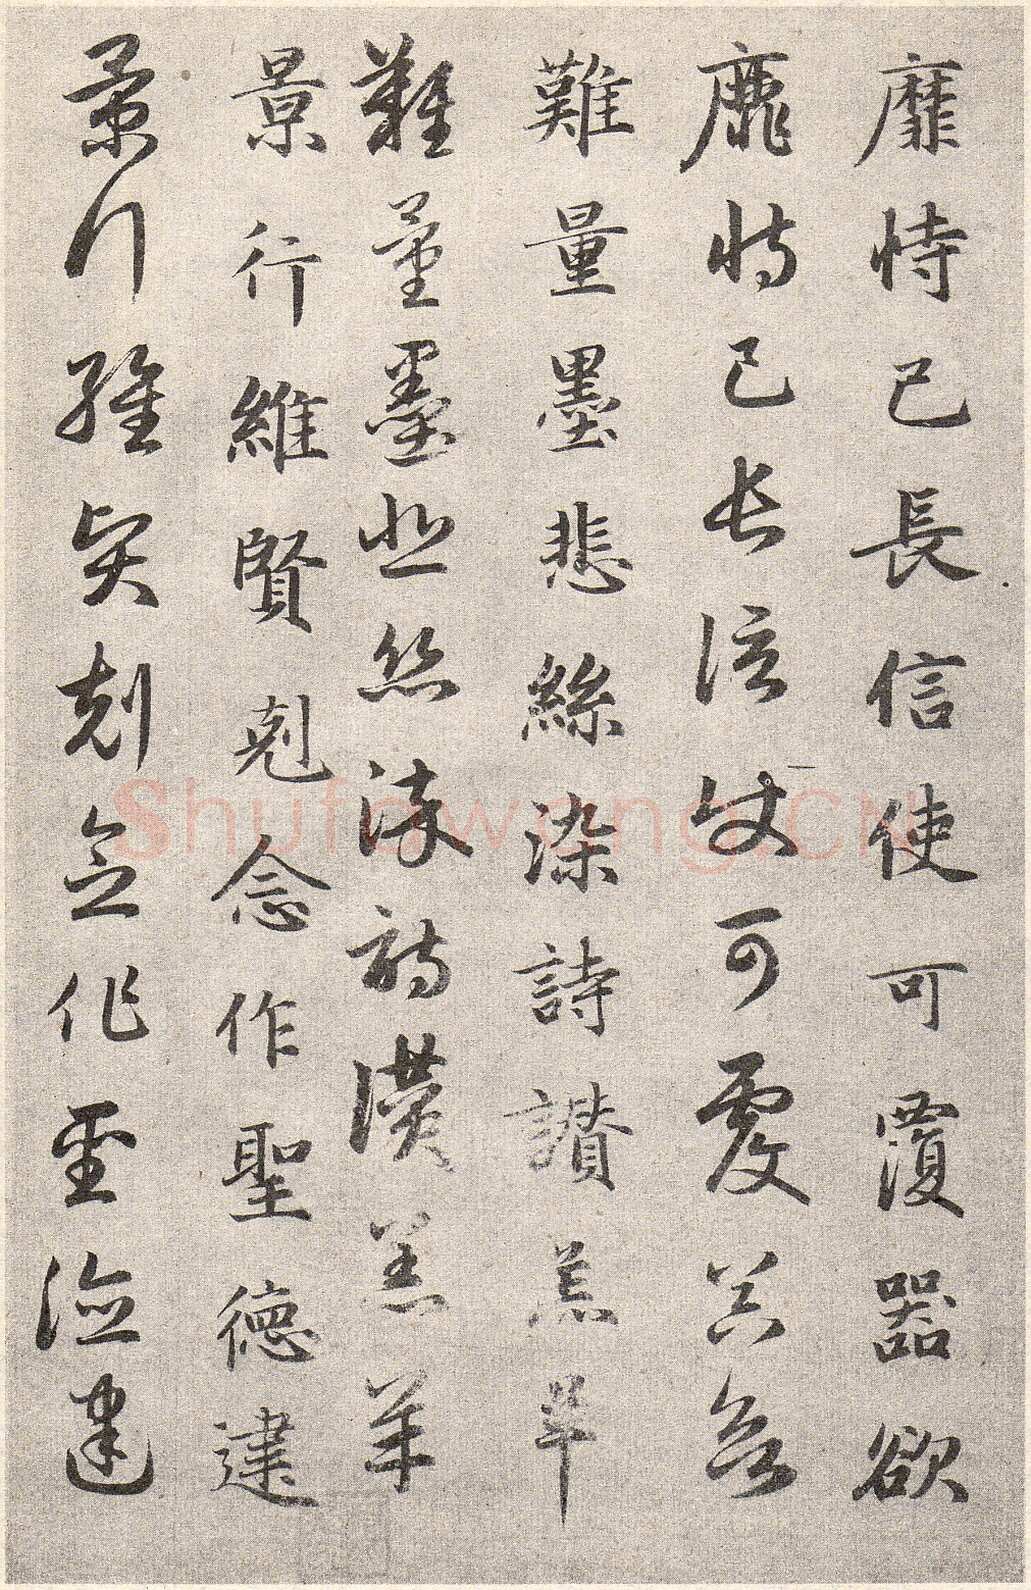 靡恃己長信使可覆器欲
靡恃己長信使可覆器欲
難量墨悲絲染詩讃羔羊
難量墨悲絲染詩讃羔羊
景行維賢剋念作聖德建
景行維賢剋念作聖德建
Shufawang.CN